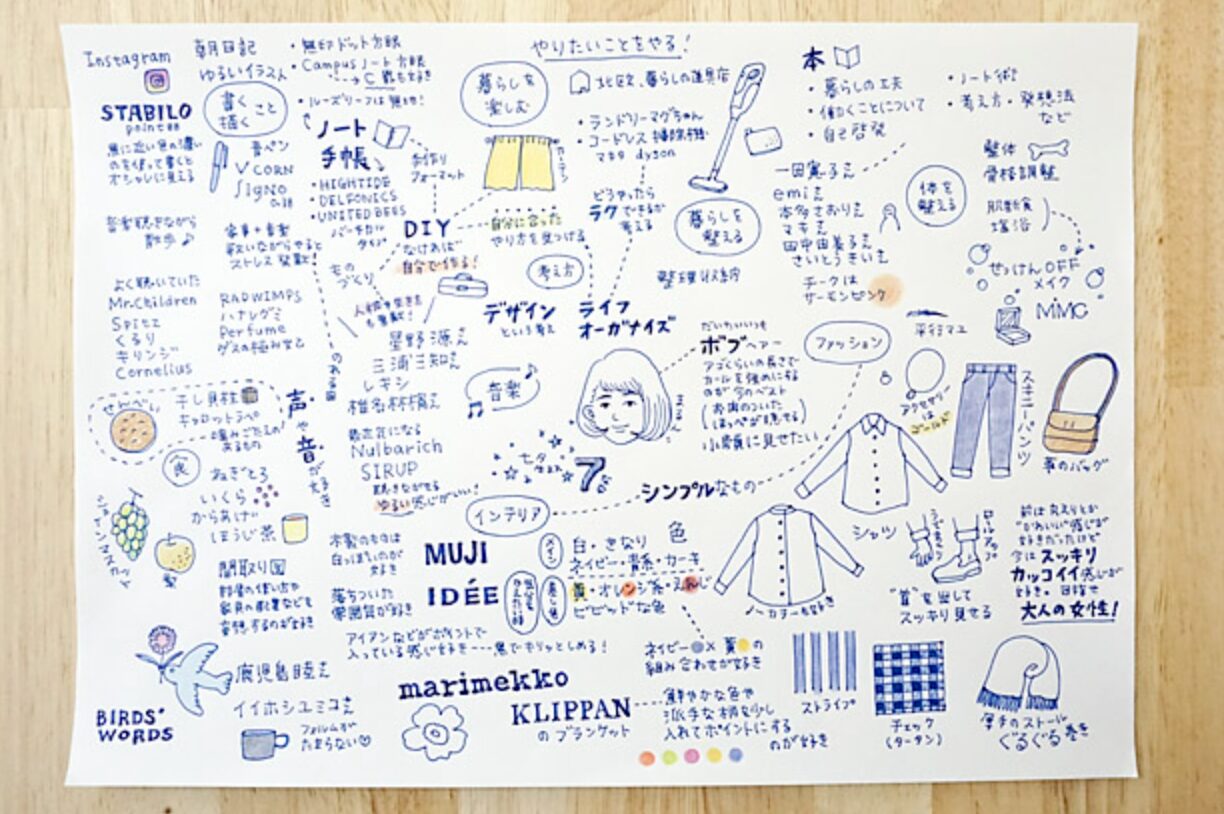 やりたいことをやる!
Instagram
朝日記
ゆるいイラスト
・無印ドット方眼
・Campusノート方眼
・ルーズリーフは無地!
書くこと
描く
STABILO
point 88
黒に近い色の濃い
のを使って書くと
オシャレに見える
青ペン
VCORN
Signo
0.38
ノート
手帳
・HIGHTIDE
・DELFONICS
・UNITED BEES
バーチカル
タイプ
手作り
フォーマット
暮らしを
楽しむ
カーテン
北欧、暮らしの道具店
・ランドリーマグちゃん
・コードレス掃除機
マキタ dyson
どうやったら
ラクできるか
考える
暮らしを
整える
整理収納
本
・暮らしの工夫
・働くことについて
・自己啓発
・ノート術
・考え方・発想法
など
一田憲子さん
emiさん
本多さおりさん
マキさん
田中由美子さん
さいとうきいさん
体を
整える
整体
骨格調整
肌断食
塩浴
せっけんOFF
メイク
MiMC
チークは
サーモンピンク
平行マユ
音楽聴きながら
散歩♪
家事+音楽
歌いながらやると
ストレス発散!
DIY
なければ
自分で作る!
もの
づくり
自分に合った
やり方を見つける
考え方
デザイン
という考え
ライフ
オーガナイズ
よく聴いていた
Mr.Children
Spitz
くるり
キリンジ
Cornelius
RADWIMPS
ハナレグミ
Perfume
ゲスの極み乙女
星野源さん
三浦三知さん
レキシ
椎名林檎さん
最近気になる
Nulbarich
SIRUP
聴きながせる
ゆるい感じがいい!
音楽
声や音が好き
だいたいいつも
ボブヘアー
アゴくらいの長さで
カールを強めにする
のが今のベスト
小顔に見せたい
ファッション
アクセサリー
は
ゴールド
スキニーパンツ
革のバッグ
せんべい
干し貝柱
キャロットラペ
噛みごたえの
あるもの
食
ねぎとろ
いくら
からあげ
ほうじ茶
シャインマスカット
梨
七夕
生まれ
シンプルなもの
インテリア
間取り図
部屋の使い方や
家具の配置などを
妄想するのが好き
木製のものは
白っぽいのが
好き
落ちついた
雰囲気が好き
MUJI
IDÉE
メイン
色
白・きなり
ネイビー・青系・カーキ
差し色
黄・オレンジ系・えんじ
ビビッドな色
アイアンなどがポイントで
入っている感じ好き…黒でキリッとしめる!
シャツ
ノーカラーも好き
うでまくり
ロールアップ
"首"を出して
スッキリ見せる
前は森ガールとか
"かわいい"感じが
好きだったけど
今はスッキリ
カッコイイ感じが
好き。目指せ
大人の女性!
BIRDS'
WORDS
鹿児島睦さん
イイホシユミコさん
フォルムが
たまらない♡
marimekko
KLIPPAN
のブランケット
ネイビー×黄の
組み合わせが好き
鮮やかな色や
派手な柄を少し
入れてポイントにする
のが好き
ストライプ
チェック
(タータン)
厚手のストール
ぐるぐる巻き